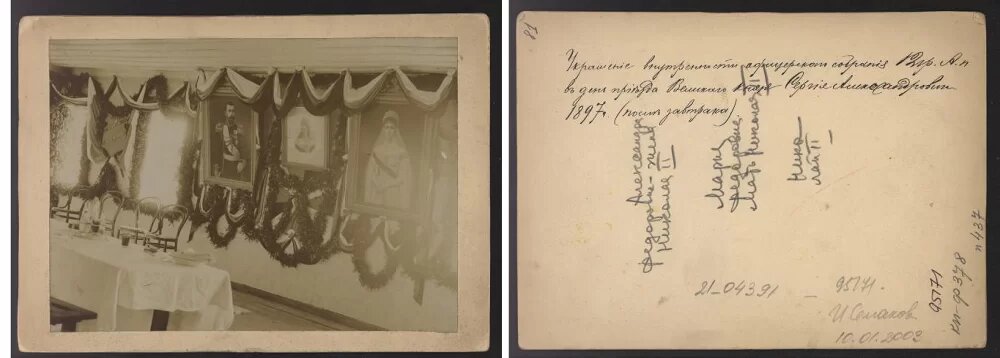 81
Украшеніе внутренности офицерскаго собранія Взр. А. п
въ день пріѣзда Великаго Князя Сергѣя Александровича
1897 г. (послѣ завтрака)
Александра
Федоровна - жена
Николая II
Мария
Федоровна
Мать Николая II
Нико
лай II
21-04391 — 95171.
И Семаков
10.01.2003
95171
кп-ф378
п 437